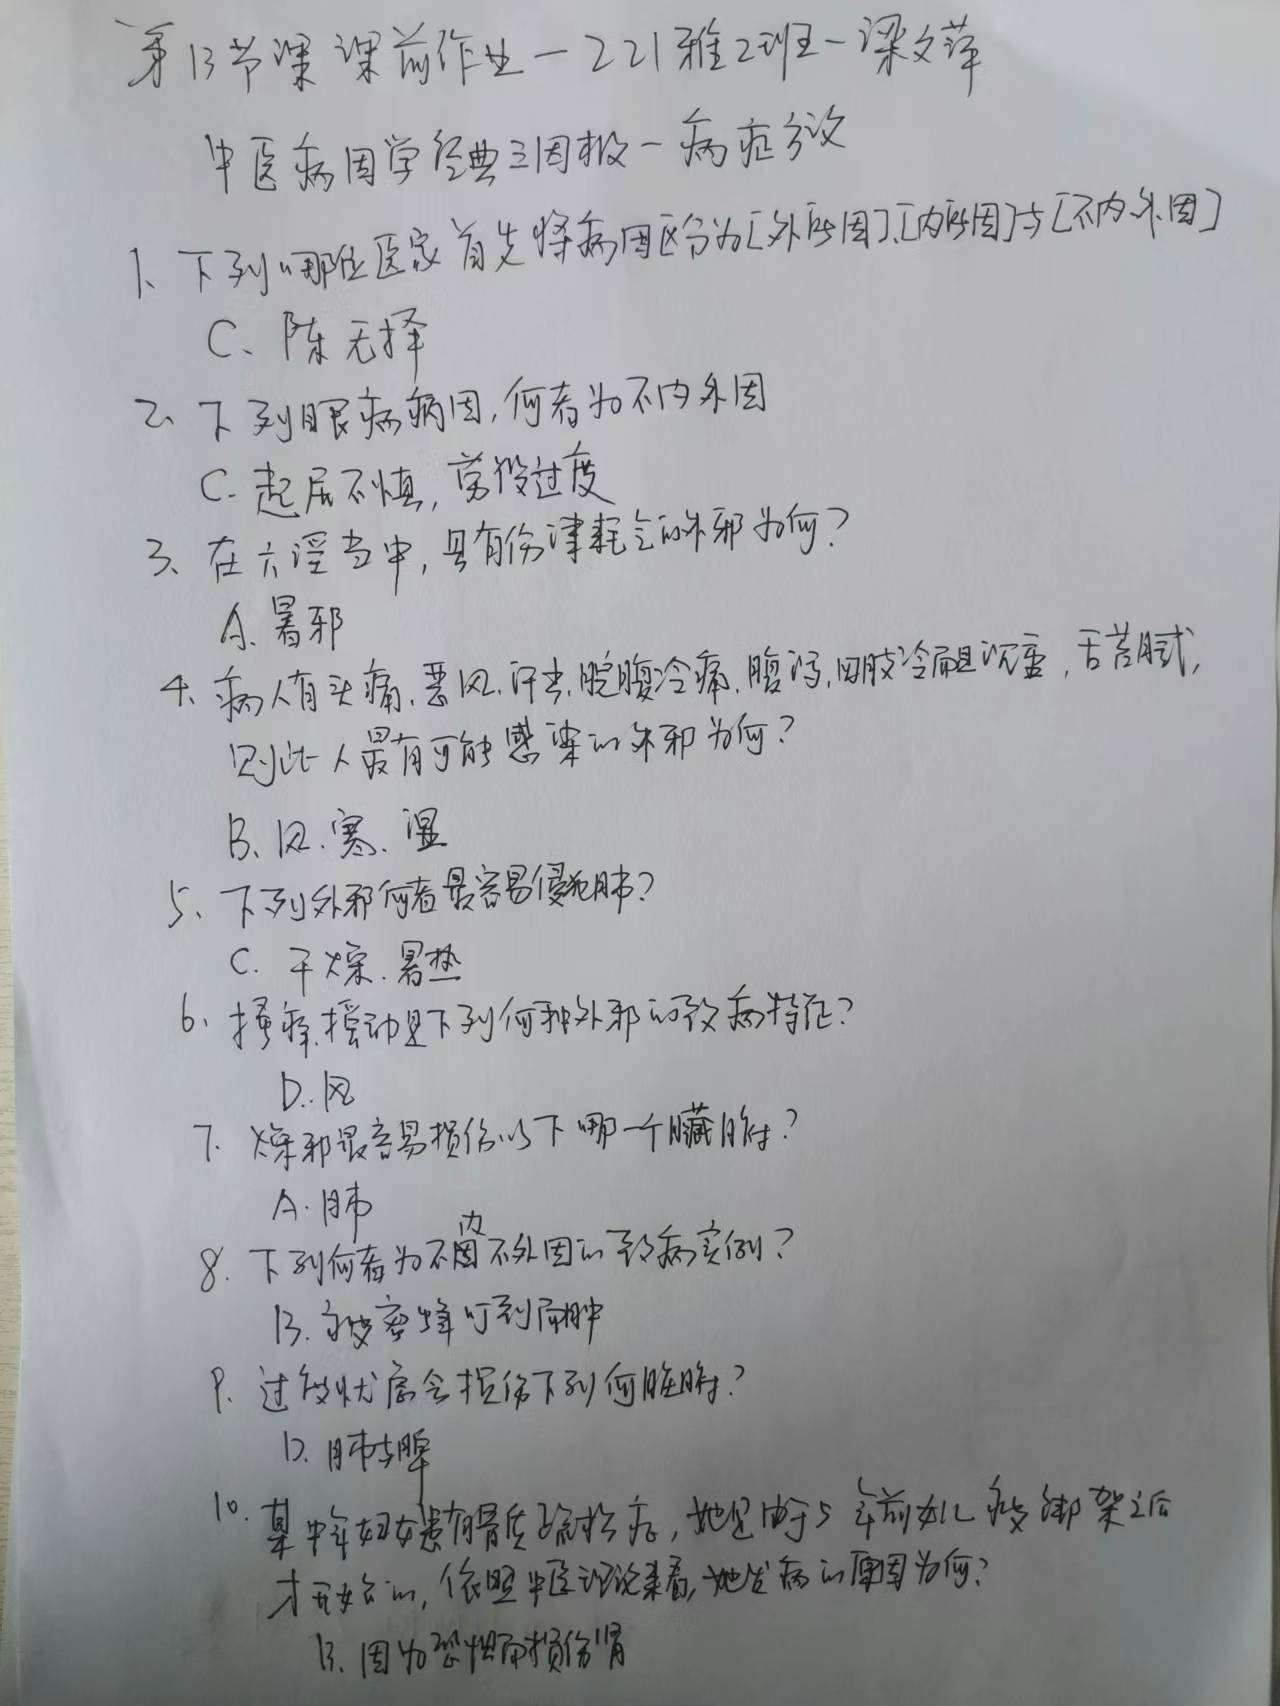 第13节课 课前作业一221雅2班一梁文萍
中医病因学经典三因极一病症方议
1、下列哪位医家首先将病因区分为[外所因]、[内所因]与[不内外因]
C、陈无择
2、下列眼病病因,何者为不内外因
C. 起居不慎,劳役过度
3、在六淫当中,具有伤津耗气的外邪为何?
A. 暑邪
4、病人有头痛、恶风、汗出、脘腹冷痛、腹泻、四肢冷而且沉重,舌苔腻,
则此人最有可能感染的外邪为何?
B、风、寒、湿
5、下列外邪何者最容易侵犯肺?
C. 干燥、暑热
6、搔痒、摇动是下列何种外邪的致病特征?
D. 风
7. 燥邪最容易损伤以下哪一个臟腑?
A. 肺
8. 下列何者为不内不外因的致病实例?
B. 被蜜蜂叮到而肿
9. 过度忧虑会损伤下列何脏腑?
D. 肺与脾
10. 某中年妇女患有骨质疏松症,她是由于5年前女儿被绑架之后
才开始的,依照中医理论来看,她发病的原因为何?
B. 因为恐惧而损伤肾